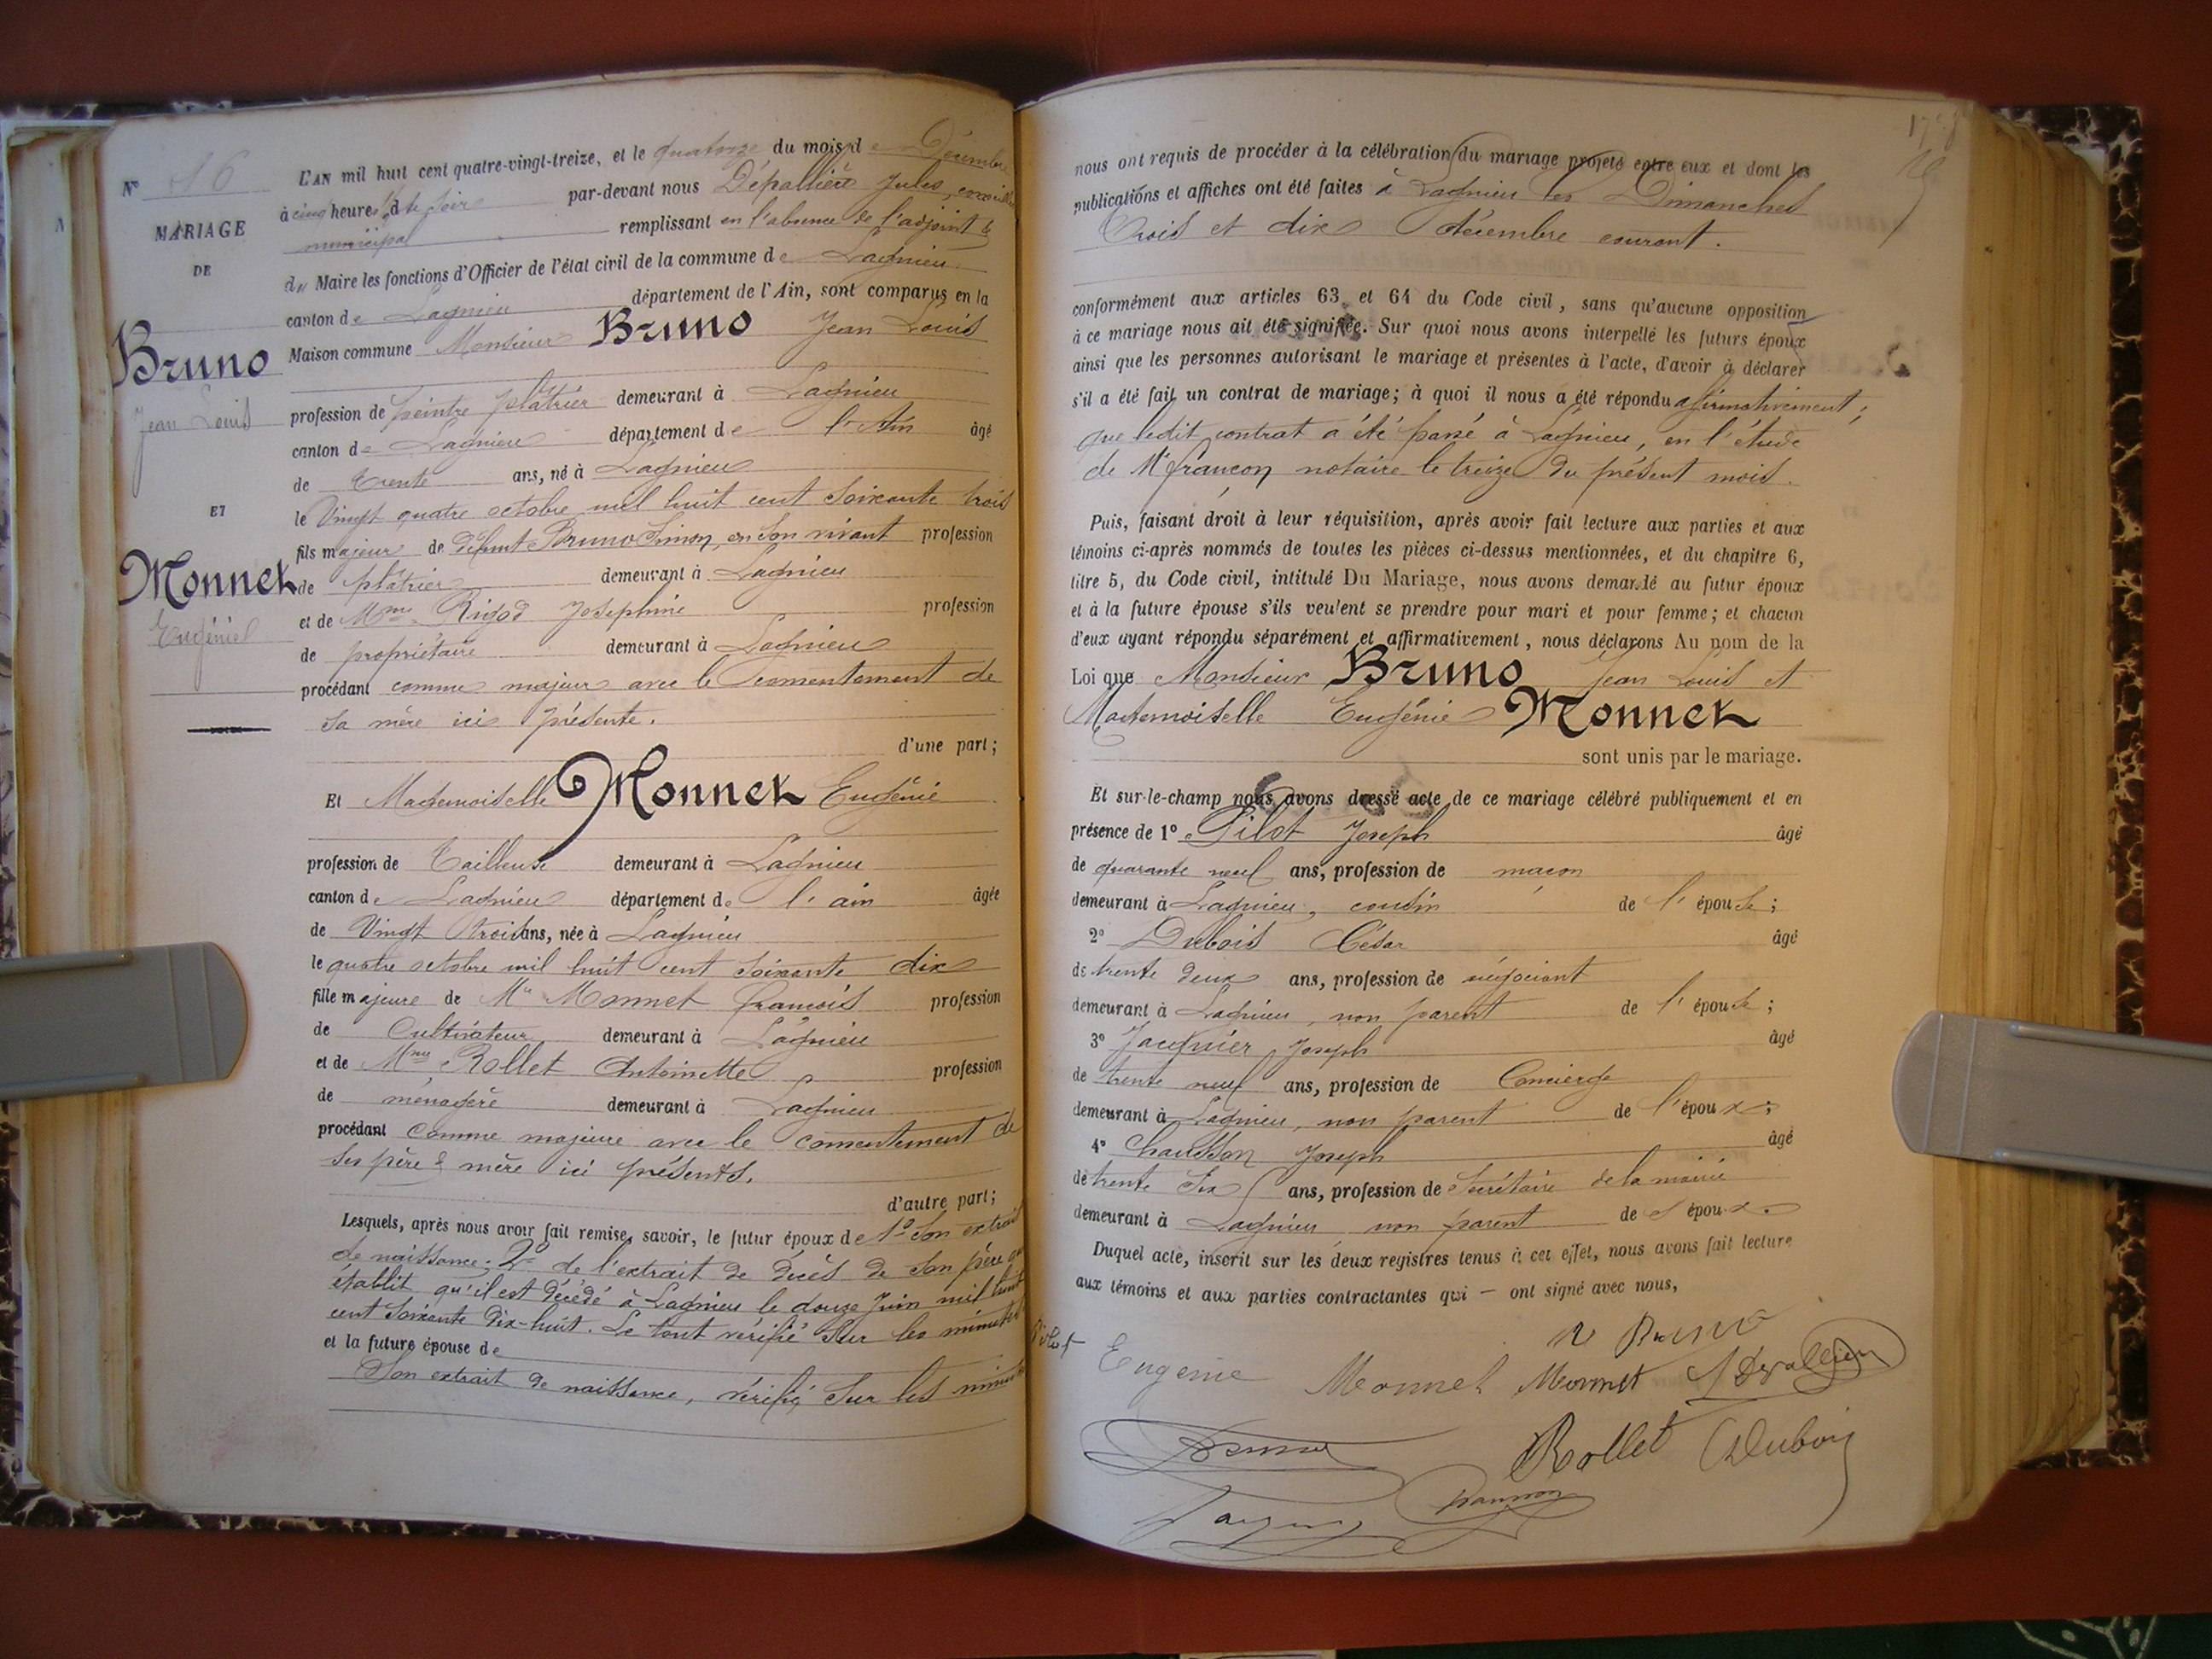 N° 16
MARIAGE
DE
Bruno
Jean Louis
ET
Monnet
Eugénie
L'AN mil huit cent quatre-vingt-treize, et le quatorze du mois de Décembre
à cinq heures du soir par-devant nous Dépallière Jules, conseiller
municipal remplissant en l'absence de l'adjoint &
du Maire les fonctions d'Officier de l'état civil de la commune de Lagnieu
canton de Lagnieu département de l'Ain, sont comparus en la
Maison commune Monsieur Bruno Jean Louis
profession de peintre plâtrier demeurant à Lagnieu
canton de Lagnieu département de l'Ain âgé
de Trente ans, né à Lagnieu
le Vingt quatre octobre mil huit cent soixante trois
fils majeur de défunt Bruno Simon, en son vivant profession
de plâtrier demeurant à Lagnieu
et de Mme Rigod Joséphine profession
de propriétaire demeurant à Lagnieu
procédant comme majeur avec le consentement de
sa mère ici présente.
d'une part;
Et Mademoiselle Monnet Eugénie
profession de Tailleuse demeurant à Lagnieu
canton de Lagnieu département de l'ain âgée
de Vingt trois ans, née à Lagnieu
le quatre octobre mil huit cent soixante dix
fille majeure de Mr Monnet François profession
de Cultivateur demeurant à Lagnieu
et de Mme Rollet Antoinette profession
de ménagère demeurant à Lagnieu
procédant comme majeure avec le consentement de
ses père & mère ici présents.
d'autre part;
Lesquels, après nous avoir fait remise, savoir, le futur époux de 1° Son extrait
de naissance; 2° de l'extrait de décès de son père qui
établit qu'il est décédé à Lagnieu le douze Juin mil huit
cent soixante dix-huit. Le tout vérifié sur les minutes
et la future épouse de
Son extrait de naissance, vérifié sur les minutes
nous ont requis de procéder à la célébration du mariage projeté entre eux et dont les
publications et affiches ont été faites à Lagnieu les Dimanches
Trois et dix décembre courant.
conformément aux articles 63 et 64 du Code civil, sans qu'aucune opposition
à ce mariage nous ait été signifiée. Sur quoi nous avons interpellé les futurs époux
ainsi que les personnes autorisant le mariage et présentes à l'acte, d'avoir à déclarer
s'il a été fait un contrat de mariage; à quoi il nous a été répondu affirmativement;
que ledit contrat a été passé à Lagnieu, en l'étude
de Me françon notaire le treize du présent mois.
Puis, faisant droit à leur réquisition, après avoir fait lecture aux parties et aux
témoins ci-après nommés de toutes les pièces ci-dessus mentionnées, et du chapitre 6,
titre 5, du Code civil, intitulé Du Mariage, nous avons demandé au futur époux
et à la future épouse s'ils veulent se prendre pour mari et pour femme; et chacun
d'eux ayant répondu séparément et affirmativement, nous déclarons Au nom de la
Loi que Monsieur Bruno Jean Louis et
Mademoiselle Eugénie Monnet
sont unis par le mariage.
Et sur-le-champ nous avons dressé acte de ce mariage célébré publiquement et en
présence de 1° Pilot Joseph âgé
de quarante neuf ans, profession de maçon
demeurant à Lagnieu, cousin de l'épouse;
2° Dubois César âgé
de trente deux ans, profession de négociant
demeurant à Lagnieu, non parent de l'épouse;
3° Jacquier Joseph âgé
de trente neuf ans, profession de Concierge
demeurant à Lagnieu, non parent de l'époux;
4° Chausson Joseph âgé
de trente six ans, profession de Secrétaire de la mairie
demeurant à Lagnieu non parent de l'époux.
Duquel acte, inscrit sur les deux registres tenus à cet effet, nous avons fait lecture
aux témoins et aux parties contractantes qui — ont signé avec nous,
Pilot Eugenie Monnet Monnet J Depallière
Bruno
Rollet Dubois